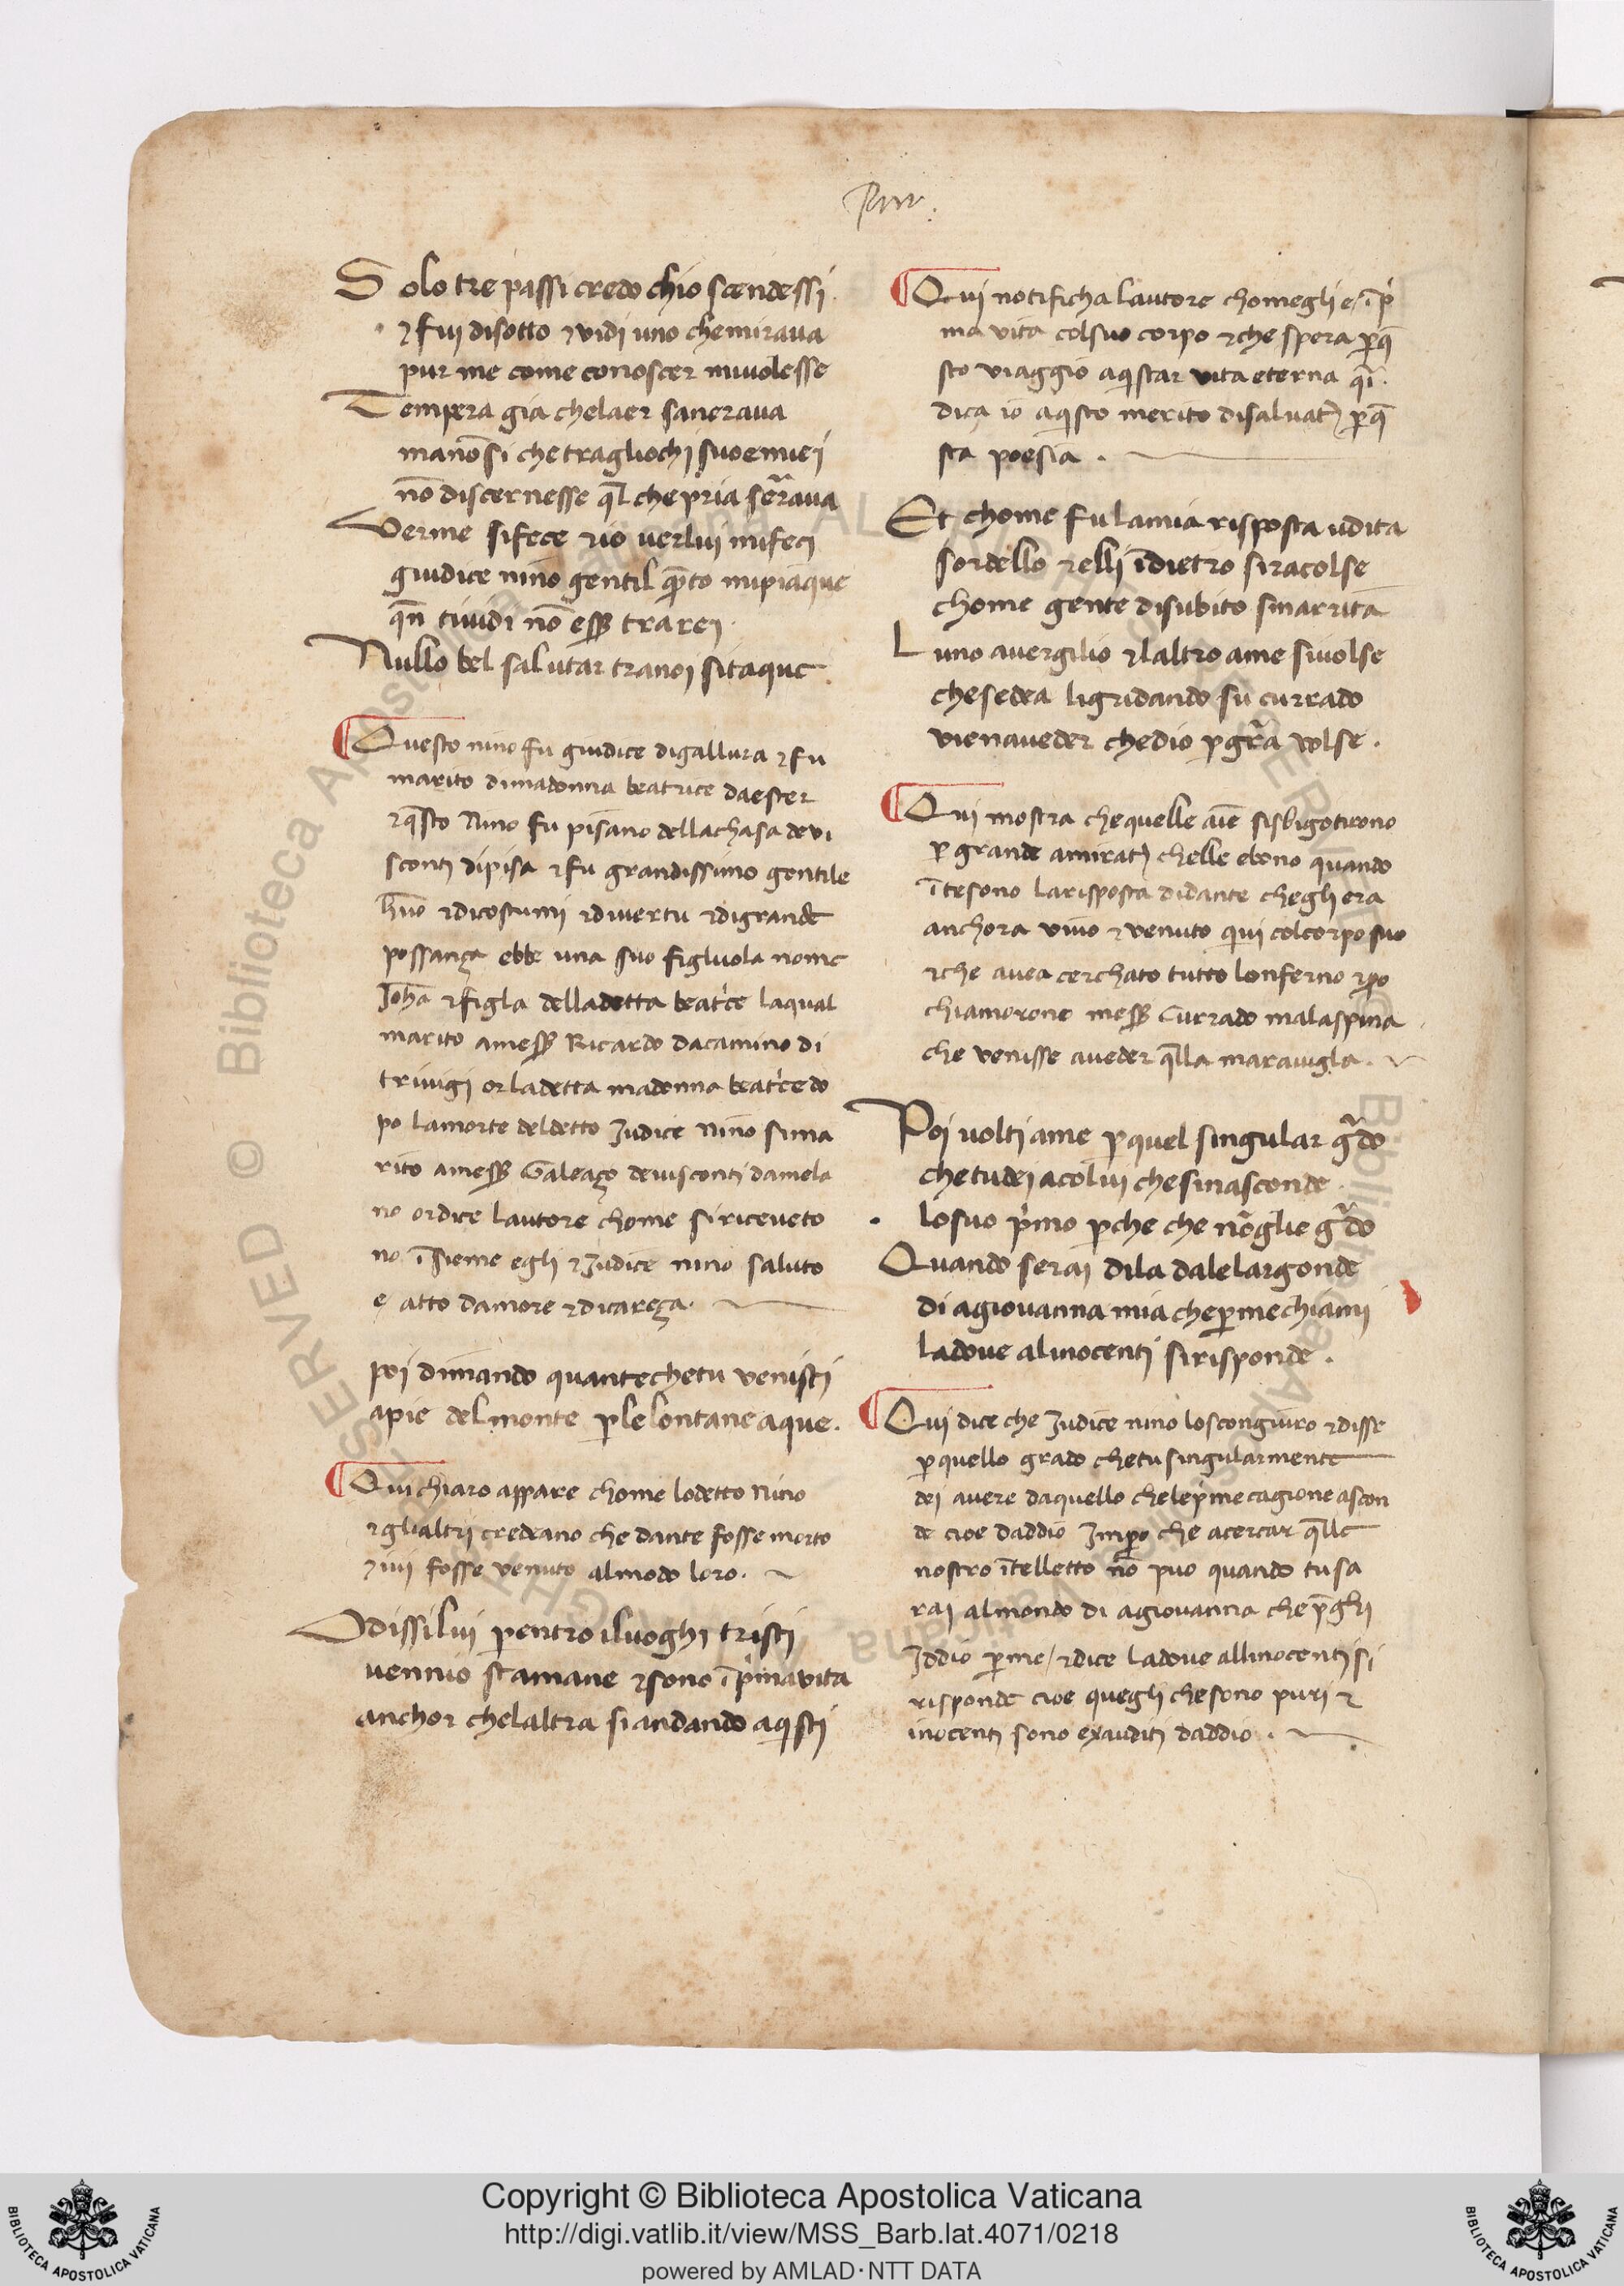 Pur.
Solo tre passi credo chio scendessi
⁊ fui disotto ⁊ vidi uno chemiraua
pur me come conoscer miuolesse
Tempera gia chelaer saneraua
manō si chetragliochi suoemiei
nō discernesse ql̄ che pria serraua
Verme sifece ⁊ io uerlui mifeci
giudice nino gentil qͣto mipiaque
qn̄ tiuidi nō esser trarei
Nullo bel salutar tranoi sitaque
Questo nino fu giudice digallura ⁊ fu
marito dimadonna beatrice daester
⁊ qsto Nino fu pisano dellachasa devi
sconti dipisa ⁊ fu grandissimo gentile
huo ⁊ dicostumi ⁊ divertu ⁊ digrande
possança ebbe una suo figluola nome
Johā ⁊ figla delladetta beatce laqual
marito amesser Ricardo dacamino di
triuigi or ladetta madonna beatce do
po lamorte deldetto Judice Nino sima
rito amesser Galeaço deuisconti damela
no ordice lautore chome siriceueto
no īsieme egli ⁊ Judice nino saluto
e/ atto damore ⁊ dicareça
poi dimando quantechetu venisti
apie del monte p̱ lelontane aque.
Qui chiaro appare chome lodetto Nino
⁊ glialtri credeano che dante fosse morto
⁊ iui fosse venuto almodo loro.
Odissilui p̱ entro iluoghi tristi
uennio stamane ⁊ sono ī p̍ma vita
anchor chelaltra si andando aqisti
Qui notificha lautore chomegli e/ ī p̍
ma vita colsuo corpo ⁊ che spera p̱ q̄
sto viaggio aqistar vita eterna qī
dica io aqisto merito disaluat) p̱ q̄
sta poesia.
Et chome fu lamia risposta udita
sordello ⁊ elli īdietro siracolse
chome gente disubito smarrita
Luno auergilio ⁊ laltro ame siuolse
chesedea ligridando su currado
vienaueder chedio p̱ grā volse.
Qui mostra chequelle aīe sisbigotirono
p̱ grande amirat) chelle ebono quando
ītesono larisposta didante chegli era
anchora vivo ⁊ venuto qui colcorpo suo
⁊ che auea cerchato tutto lonferno ⁊ p̱o
chiamorono messer Currado malaspina
che venisse aueder q̄lla marauigla.
Poi uolti ame p̱ quel singular gᷓdo
chetudei acolui chesinasconde
losuo p̍mo p̱che che nōglie gᷓdo
Quando serai dila dalelargonde
di agiouanna mia chep̱mechiami
ladoue alinocenti sirisponde.
Qui dice che Judice nino loscongiuro ⁊ disse
p̱ quello grado chetu singularmente
dei auere daquello chelep̍me cagione ascon
de cioe daddio Imp̱o che acercar q̄lle
nostro ītelletto nō puo quando tu sa
rai almondo di agiouanna che p̄ghi
Iddio p̱ me / ⁊ dice ladoue allinocenti si
risponde cioe quegli chesono puri ⁊
inocenti sono exauditi daddio.
Copyright © Biblioteca Apostolica Vaticana
http://digi.vatlib.it/view/MSS_Barb.lat.4071/0218
powered by AMLAD·NTT DATA
BIBLIOTECA APOSTOLICA VATICANA
BIBLIOTECA APOSTOLICA VATICANA